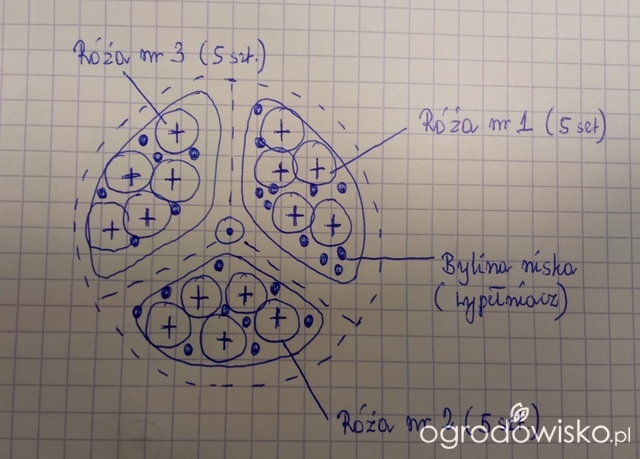 Róża nr 3 (5 szt.)
Róża nr 1 (5 szt)
Bylina niska
(wypełniacz)
Róża nr 2 (5 szt.)
ogrodowisko.pl